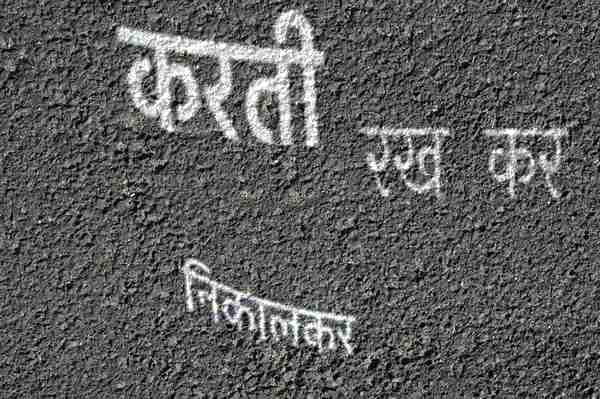 करती
रख कर
निकालकर